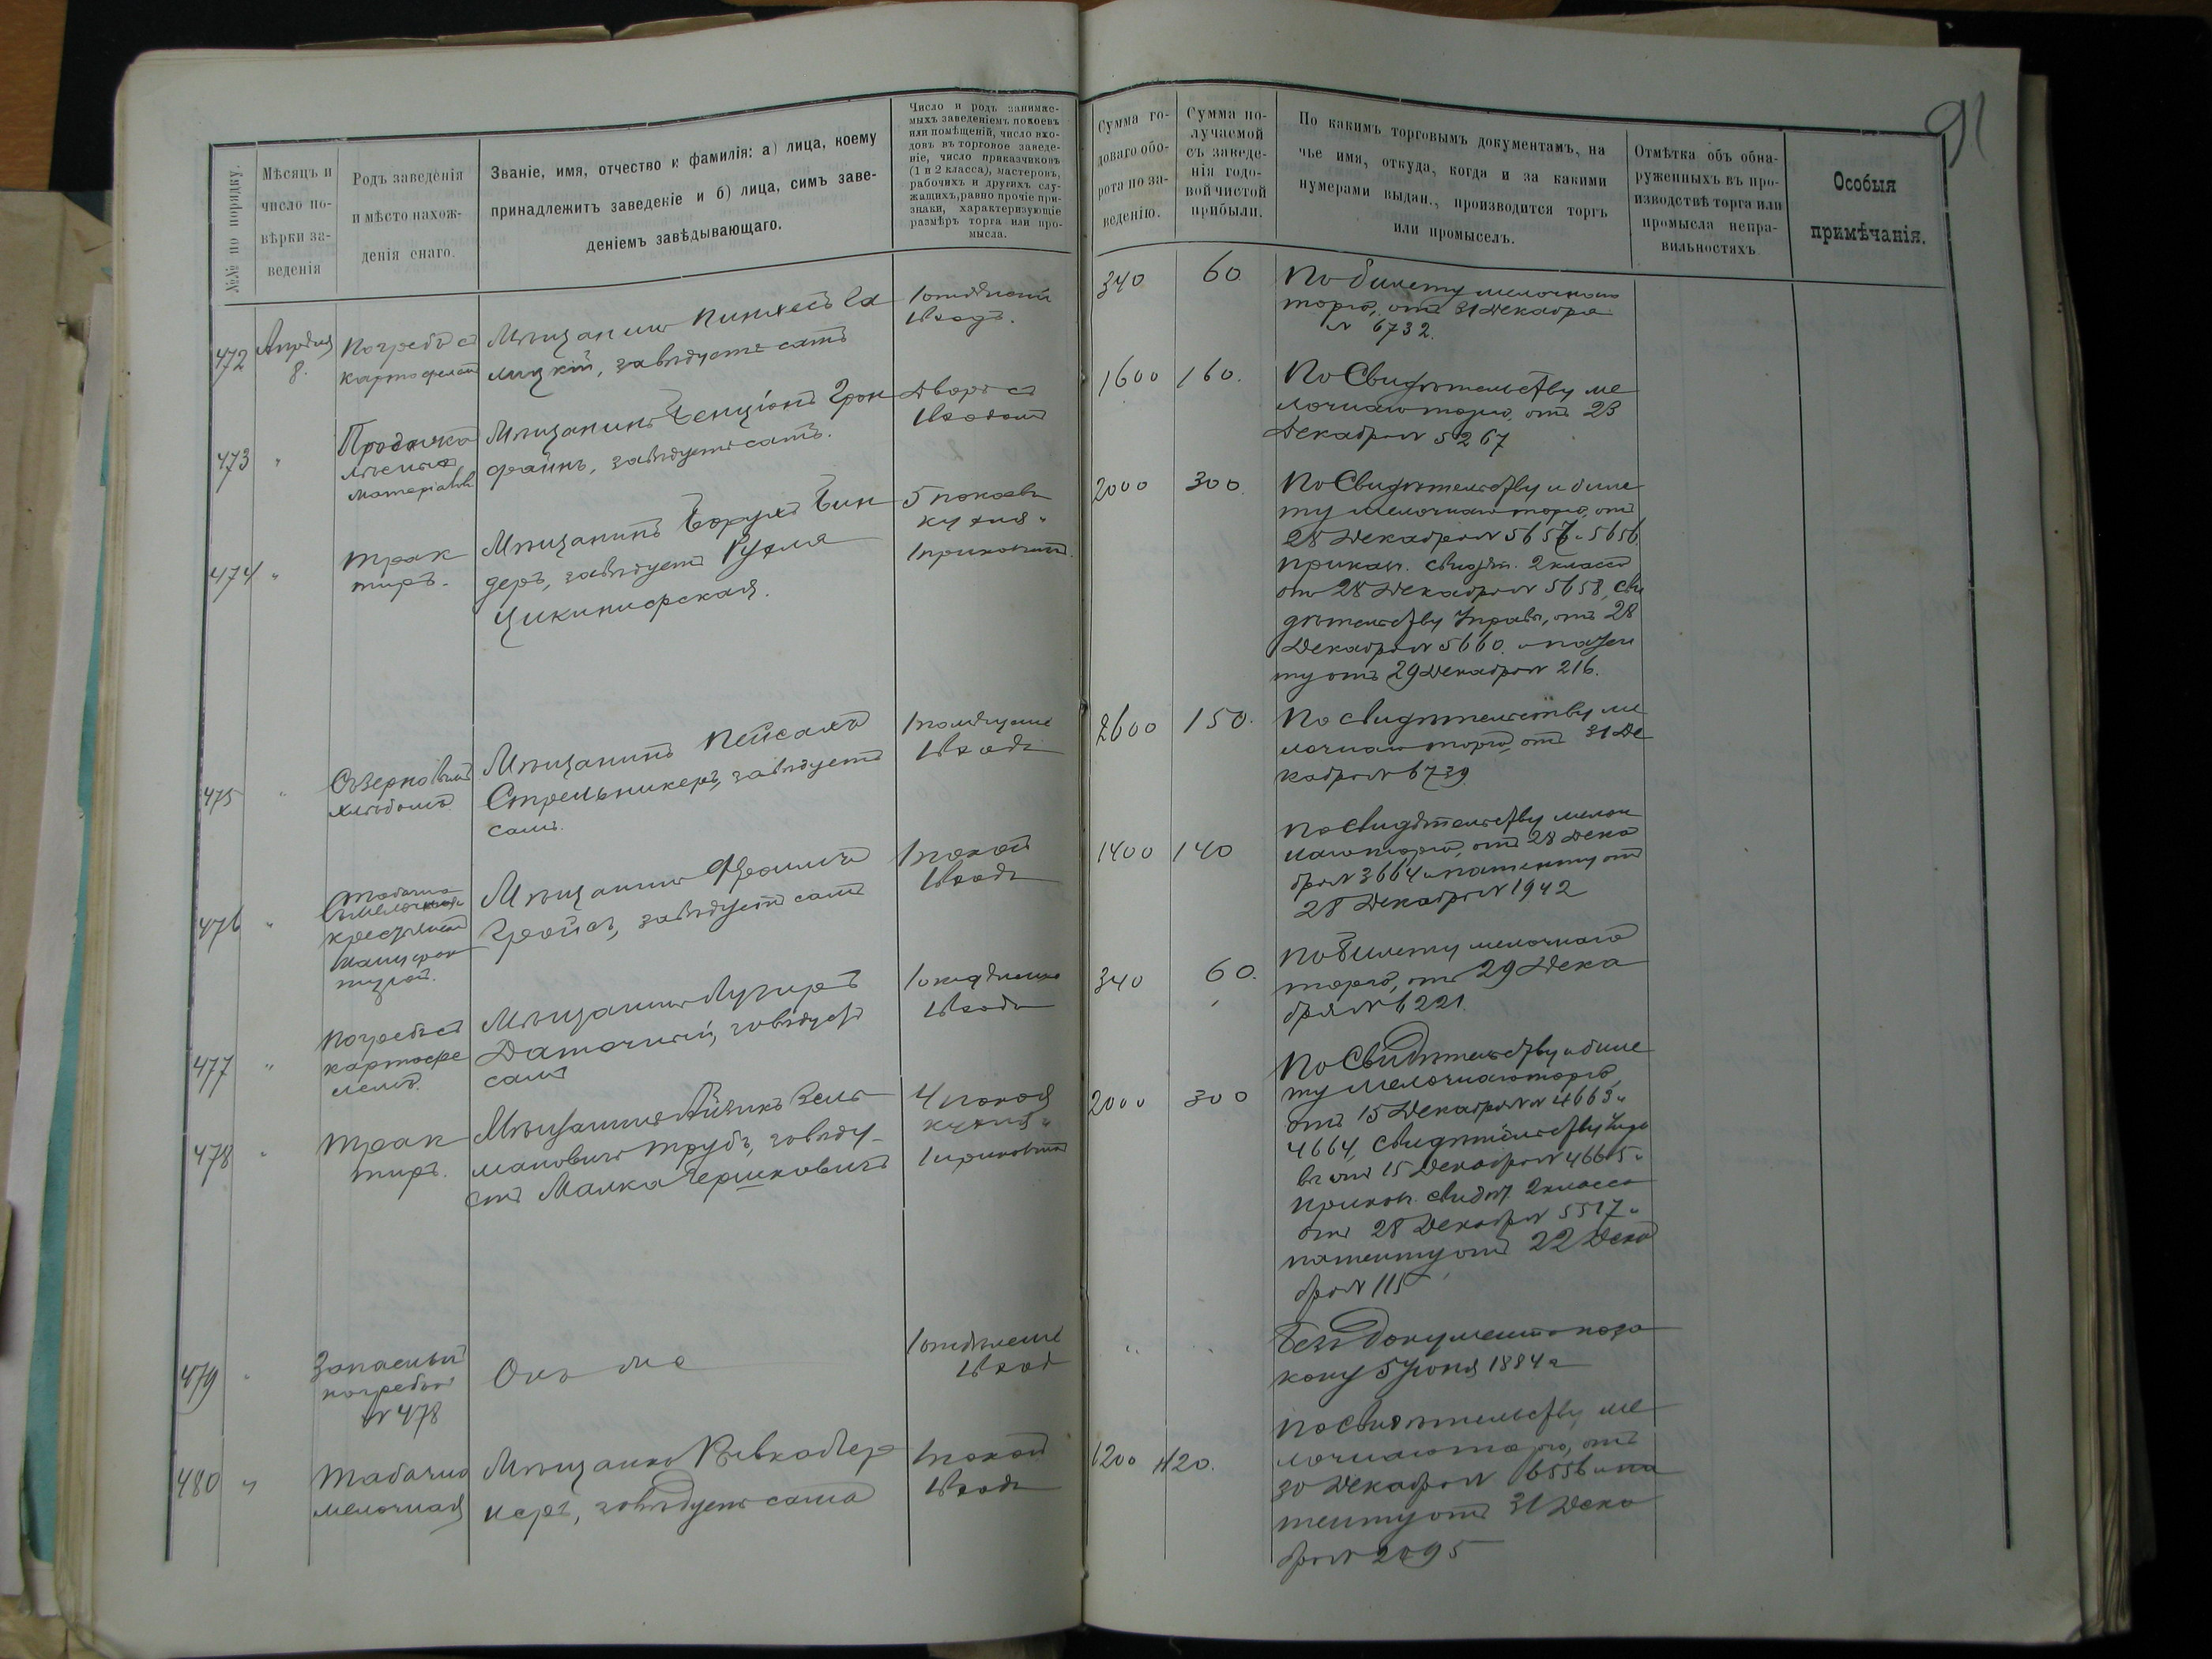 91
№№ по порядку.
Мѣсяцъ и
число по-
вѣрки за-
веденія
Родъ заведенія
и мѣсто нахож-
денія онаго.
Званіе, имя, отчество и фамилія: а) лица, коему
принадлежитъ заведеніе и б) лица, симъ заве-
деніемъ завѣдывающаго.
Число и родъ занимае-
мыхъ заведеніемъ покоевъ
или помѣщеній, число вхо-
довъ въ торговое заведе-
ніе, число приказчиковъ
(1 и 2 класса), мастеровъ,
рабочихъ и другихъ слу-
жащихъ, равно прочіе при-
знаки, характеризующіе
размѣръ торга или про-
мысла.
Сумма го-
доваго обо-
рота по за-
веденію.
Сумма по-
лучаемой
съ заведе-
нія годо-
вой чистой
прибыли.
По какимъ торговымъ документамъ, на
чье имя, откуда, когда и за какими
нумерами выдан., производится торгъ
или промыселъ.
Отмѣтка объ обна-
руженныхъ въ про-
изводствѣ торга или
промысла непра-
вильностяхъ
Особыя
примѣчанія.
472
Апрѣля
8.
Погребъ съ
картофелемъ
Мѣщанинъ Пинхесъ Га
лицкій, завѣдуетъ самъ
1 отдѣленіе
1 входъ.
340
60
По билету мелочнаго
торга, отъ 31 Декабря
№ 6732.
473
"
Продажа
лѣсныхъ
матеріаловъ
Мѣщанинъ Бенціонъ Грон
файнъ, завѣдуетъ самъ.
Дворъ съ
1 входомъ
1600
160.
По Свидѣтельству ме
лочнаго торга, отъ 23
Декабря № 5267
474
"
Трак
тиръ.
Мѣщанинъ Борухъ Бин
деръ, завѣдуетъ Рухля
5 покоевъ
кухня "
1 приказчикъ.
2000
300.
По Свидѣтельству и биле
ту мелочнаго торга, отъ
28 Декабря № 5657 и 5656
приказ. свидѣт. 2 класса
отъ 28 Декабря № 5658, Сви
дѣтельству Управы, отъ 28
Декабря № 5660. и патен
ту отъ 29 Декабря № 216.
475
"
Съ зерновымъ
хлѣбомъ
Мѣщанинъ Пейсахъ
Стрельникеръ, завѣдуетъ
самъ.
1 помѣщеніе
1 входъ
2600
150.
По свидѣтельству ме
лочнаго торга, отъ 31 Де
кабря № 6739
476
"
Табачно
мелочная
крестьянской
мануфак
турой.
Мѣщанинъ Фроимъ
Гройсъ, завѣдуетъ самъ
1 покой
1 входъ
1400
140
По Свидѣтельству мелоч
наго торга, отъ 28 Дека
бря № 3664 и патенту отъ
28 Декабря № 1942
477
"
Погребъ съ
картофе
лемъ.
Мѣщанинъ Лузиръ
Даточный, завѣдуетъ
самъ
1 отдѣленіе
1 входъ
340
60.
По Билету мелочнаго
торга, отъ 29 Дека
бря № 6221.
478
"
Трак
тиръ.
Мѣщанинъ Айзикъ Зель
мановичъ Трубъ, завѣду-
етъ Малка Гершковичъ
4 покоя
кухня "
1 приказчикъ
2000
300
По Свидѣтельству и биле
ту Мелочнаго торга,
отъ 15 Декабря № № 4663 и
4664, свидѣтельству Упра
вы отъ 15 Декабря № 4665 и
приказ. свидѣт. 2 класса
отъ 28 Декабря № 5517 и
патенту отъ 22 Дека
бря № 115
479
"
Запасный
погребъ
№ 478
Онъ же
1 отдѣленіе
1 входъ
"
"
Безъ документа по за
кону 5 Іюня 1884 г
480
"
Табачно
мелочная
Мѣщанка Ривка Бер
керъ, завѣдуетъ сама
1 покой
1 входъ
1200
120.
По Свидѣтельству ме
лочнаго торга, отъ
30 Декабря № 6556 и па
тенту отъ 31 Дека
бря № 2095